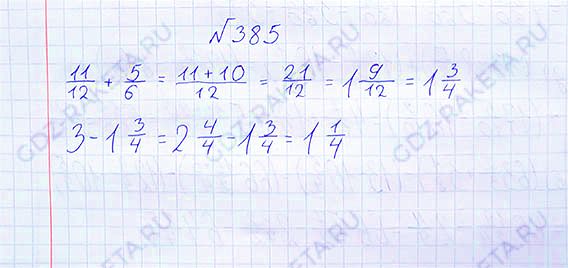 №385
11/12 + 5/6 = 11+10/12 = 21/12 = 1 9/12 = 1 3/4
3 - 1 3/4 = 2 4/4 - 1 3/4 = 1 1/4
GDZ-RAKETA.RU
GDZ-RAKETA.RU
GDZ-RAKETA.RU
GDZ-RAKETA.RU